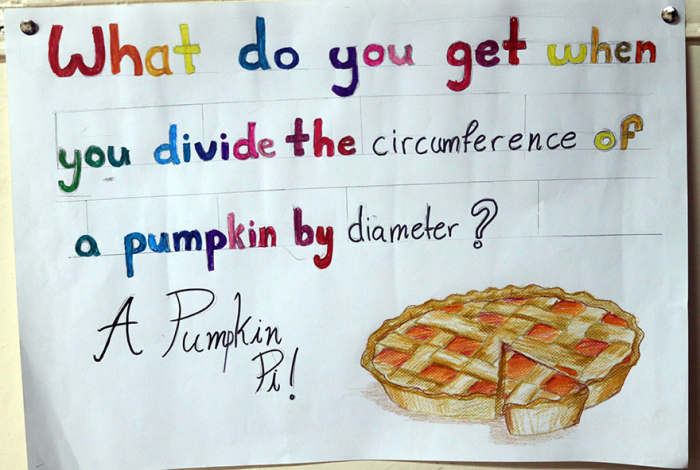 What do you get when
you divide the circumference of
a pumpkin by diameter?
A Pumpkin
Pi!